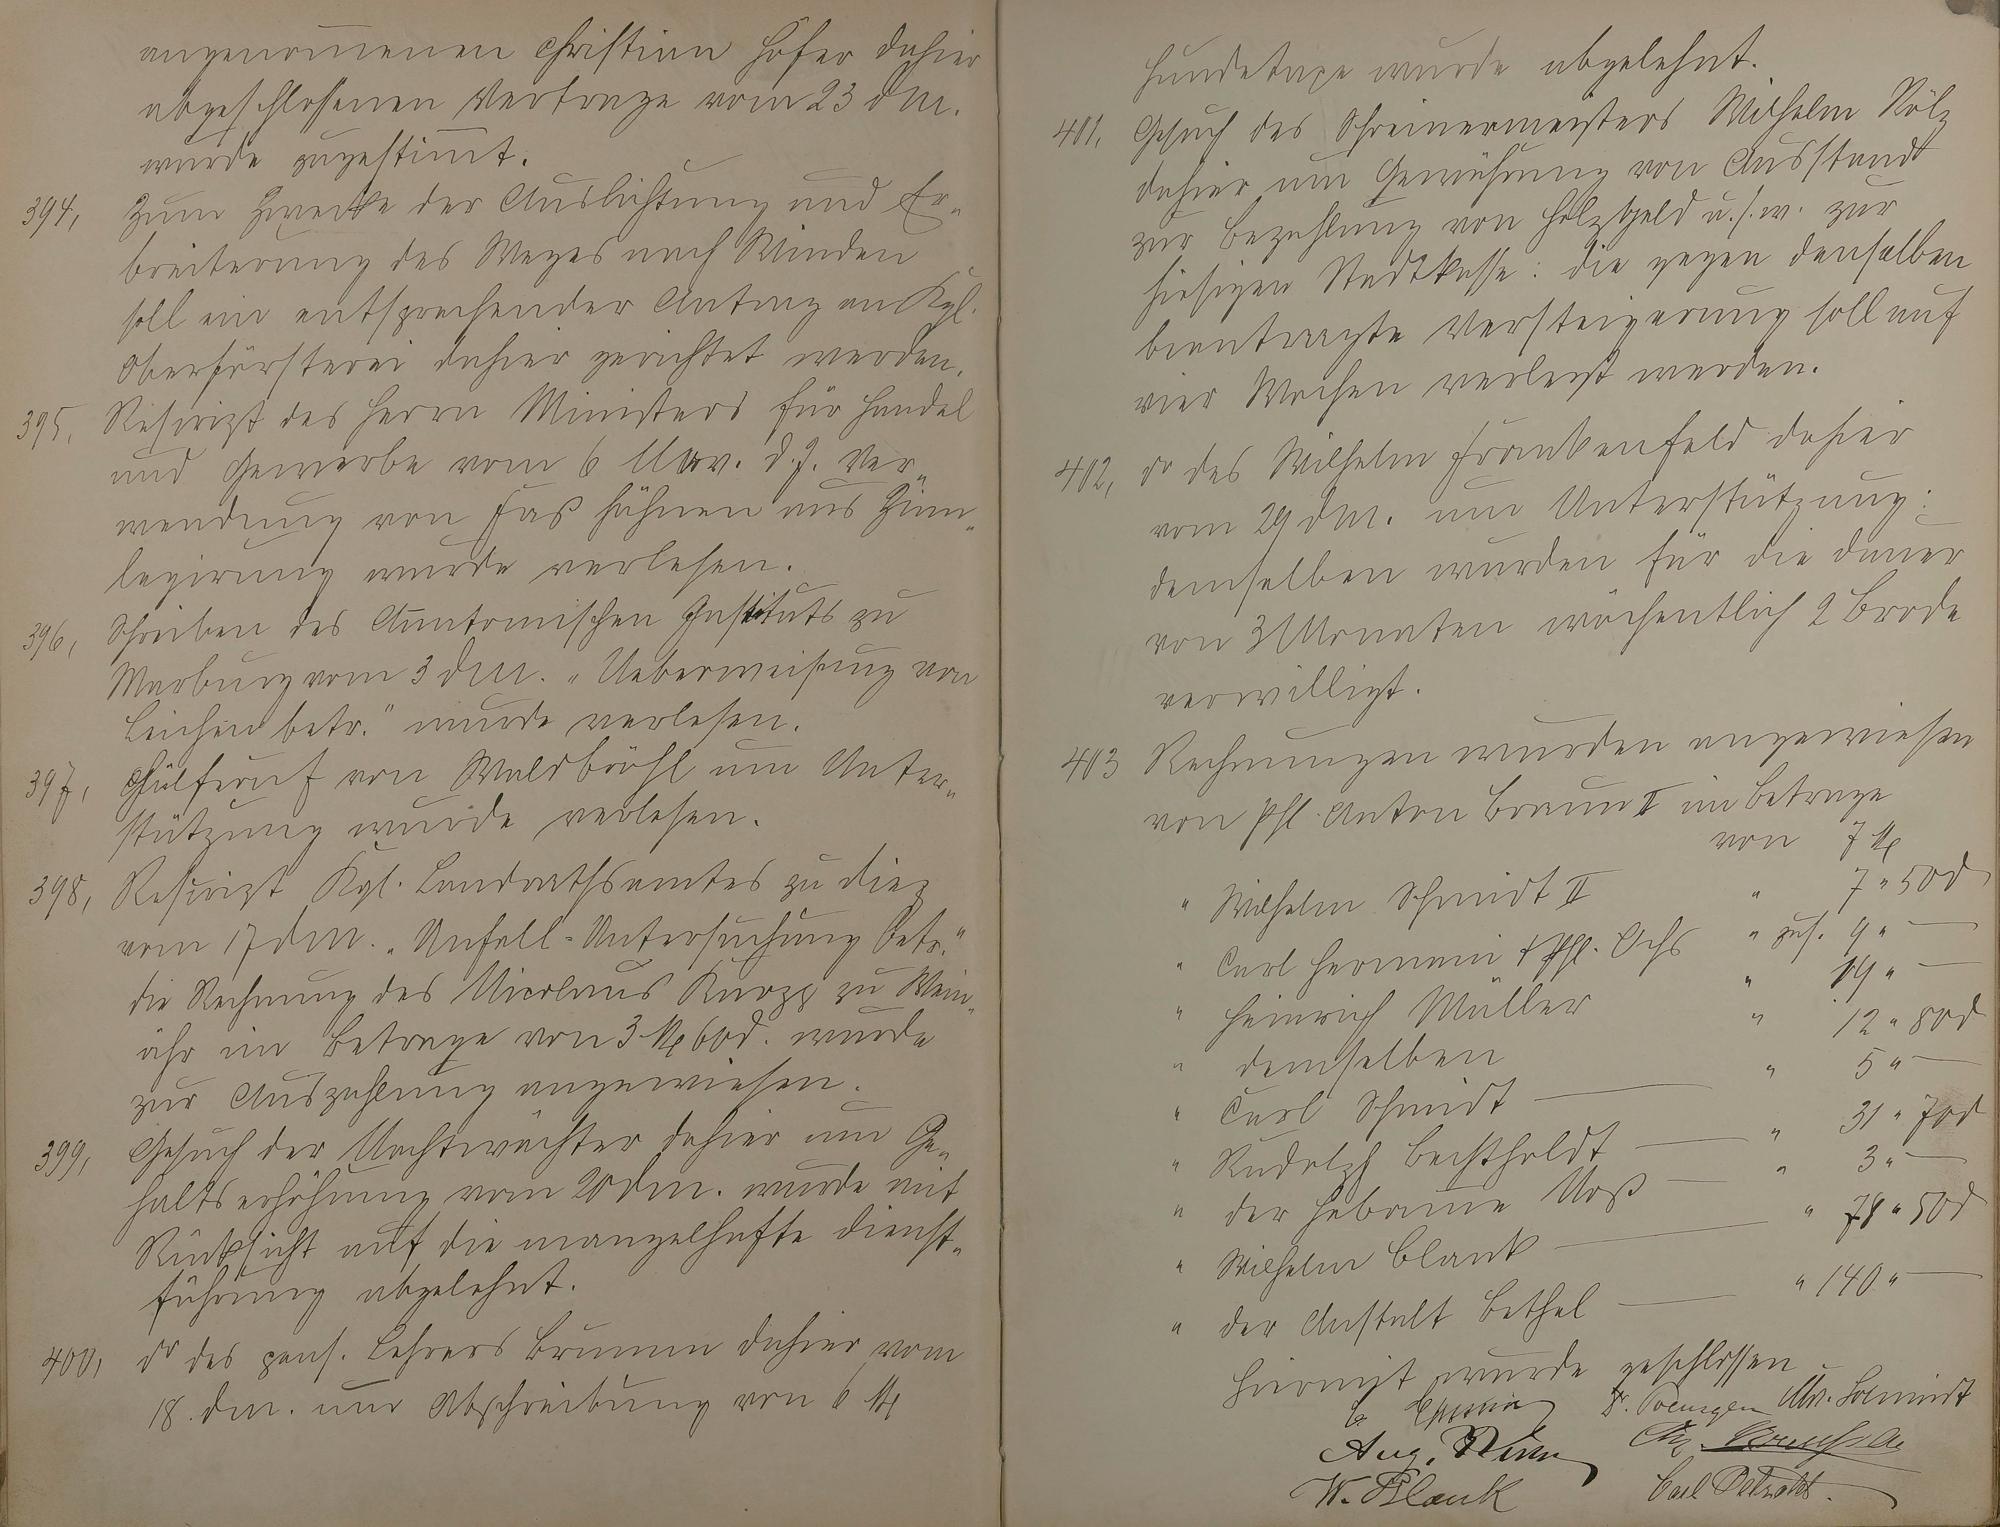 angenom̄enen Christian Hofer dahier
abgeschlossenen Vertrage vom 23 d M.
wurde zugestim̄t.
394, Zum Zwecke der Auslichtung und Er„
breiterung des Weges nach Winden
soll ein entsprechender Antrag an Kgl.
Oberförsterei dahier gerichtet werden.
395, Rescript des Herrn Ministers für Handel
und Gewerbe vom 6 Nov. d. J. Ver„
wendung von Faß hähnen aus Zinn„
legirung wurde verlesen.
396, Schreiben des Anatomischen Instituts zu
Marburg vom 3 d M. „Ueberweisung von
Leichen betr." wurde verlesen.
397, Hülferuf von Waldbröhl um Unter„
stützung wurde verlesen.
398, Rescript Kgl. Landrathsamtes zu Diez
vom 17 d M. „Unfall-Untersuchung betr."
die Rechnung des Nicolaus Kurzz zu Wein„
ähr im Betrage von 3 M 60 d. wurde
zur Auszahlung angewiesen.
399, Gesuch der Nachtwächter dahier um Ge„
haltserhöhung vom 20 d M. wurde mit
Rücksicht auf die mangelhafte Dienst„
führung abgelehnt.
400, do des pens. Lehrers Brumm dahier vom
18. d M. um Abschreibung von 6 M
Hundetaxe wurde abgelehnt.
401, Gesuch des Schreinermeisters Wilhelm Nölz
dahier um Gewährung von Ausstand
zur Bezahlung von Holzgeld u. s. w. zur
hiesigen Stadtkasse: die gegen denselben
beantragte Versteigerung soll auf
vier Wochen verlegt werden.
402, do des Wilhelm Frankenfeld dahier
vom 29 d M. um Unterstützung:
demselben wurden für die Dauer
von 3 Monaten wöchentlich 2 Brode
verwilligt.
403 Rechnungen wurden angewiesen
von Phl. Anton Braun II im Betrage
von 7 M
" Wilhelm Schmidt II " 7 " 50 d
" Carl Hermani + Phl. Ochs " zus. 9 " —
" Heinrich Müller " 19 " —
" demselben " 12 " 80 d
" Carl Schmidt — " 5 " —
" Rudolph Bechtholdt — " 31 " 70 d
" der Hebam̄e Noß — " 3 " —
" Wilhelm Blank — " 78 " 50 d
" der Anstalt Bethel — " 140 " —
Hiermit wurde geschlossen
Schmidt
Aug.
W. Blank Carl